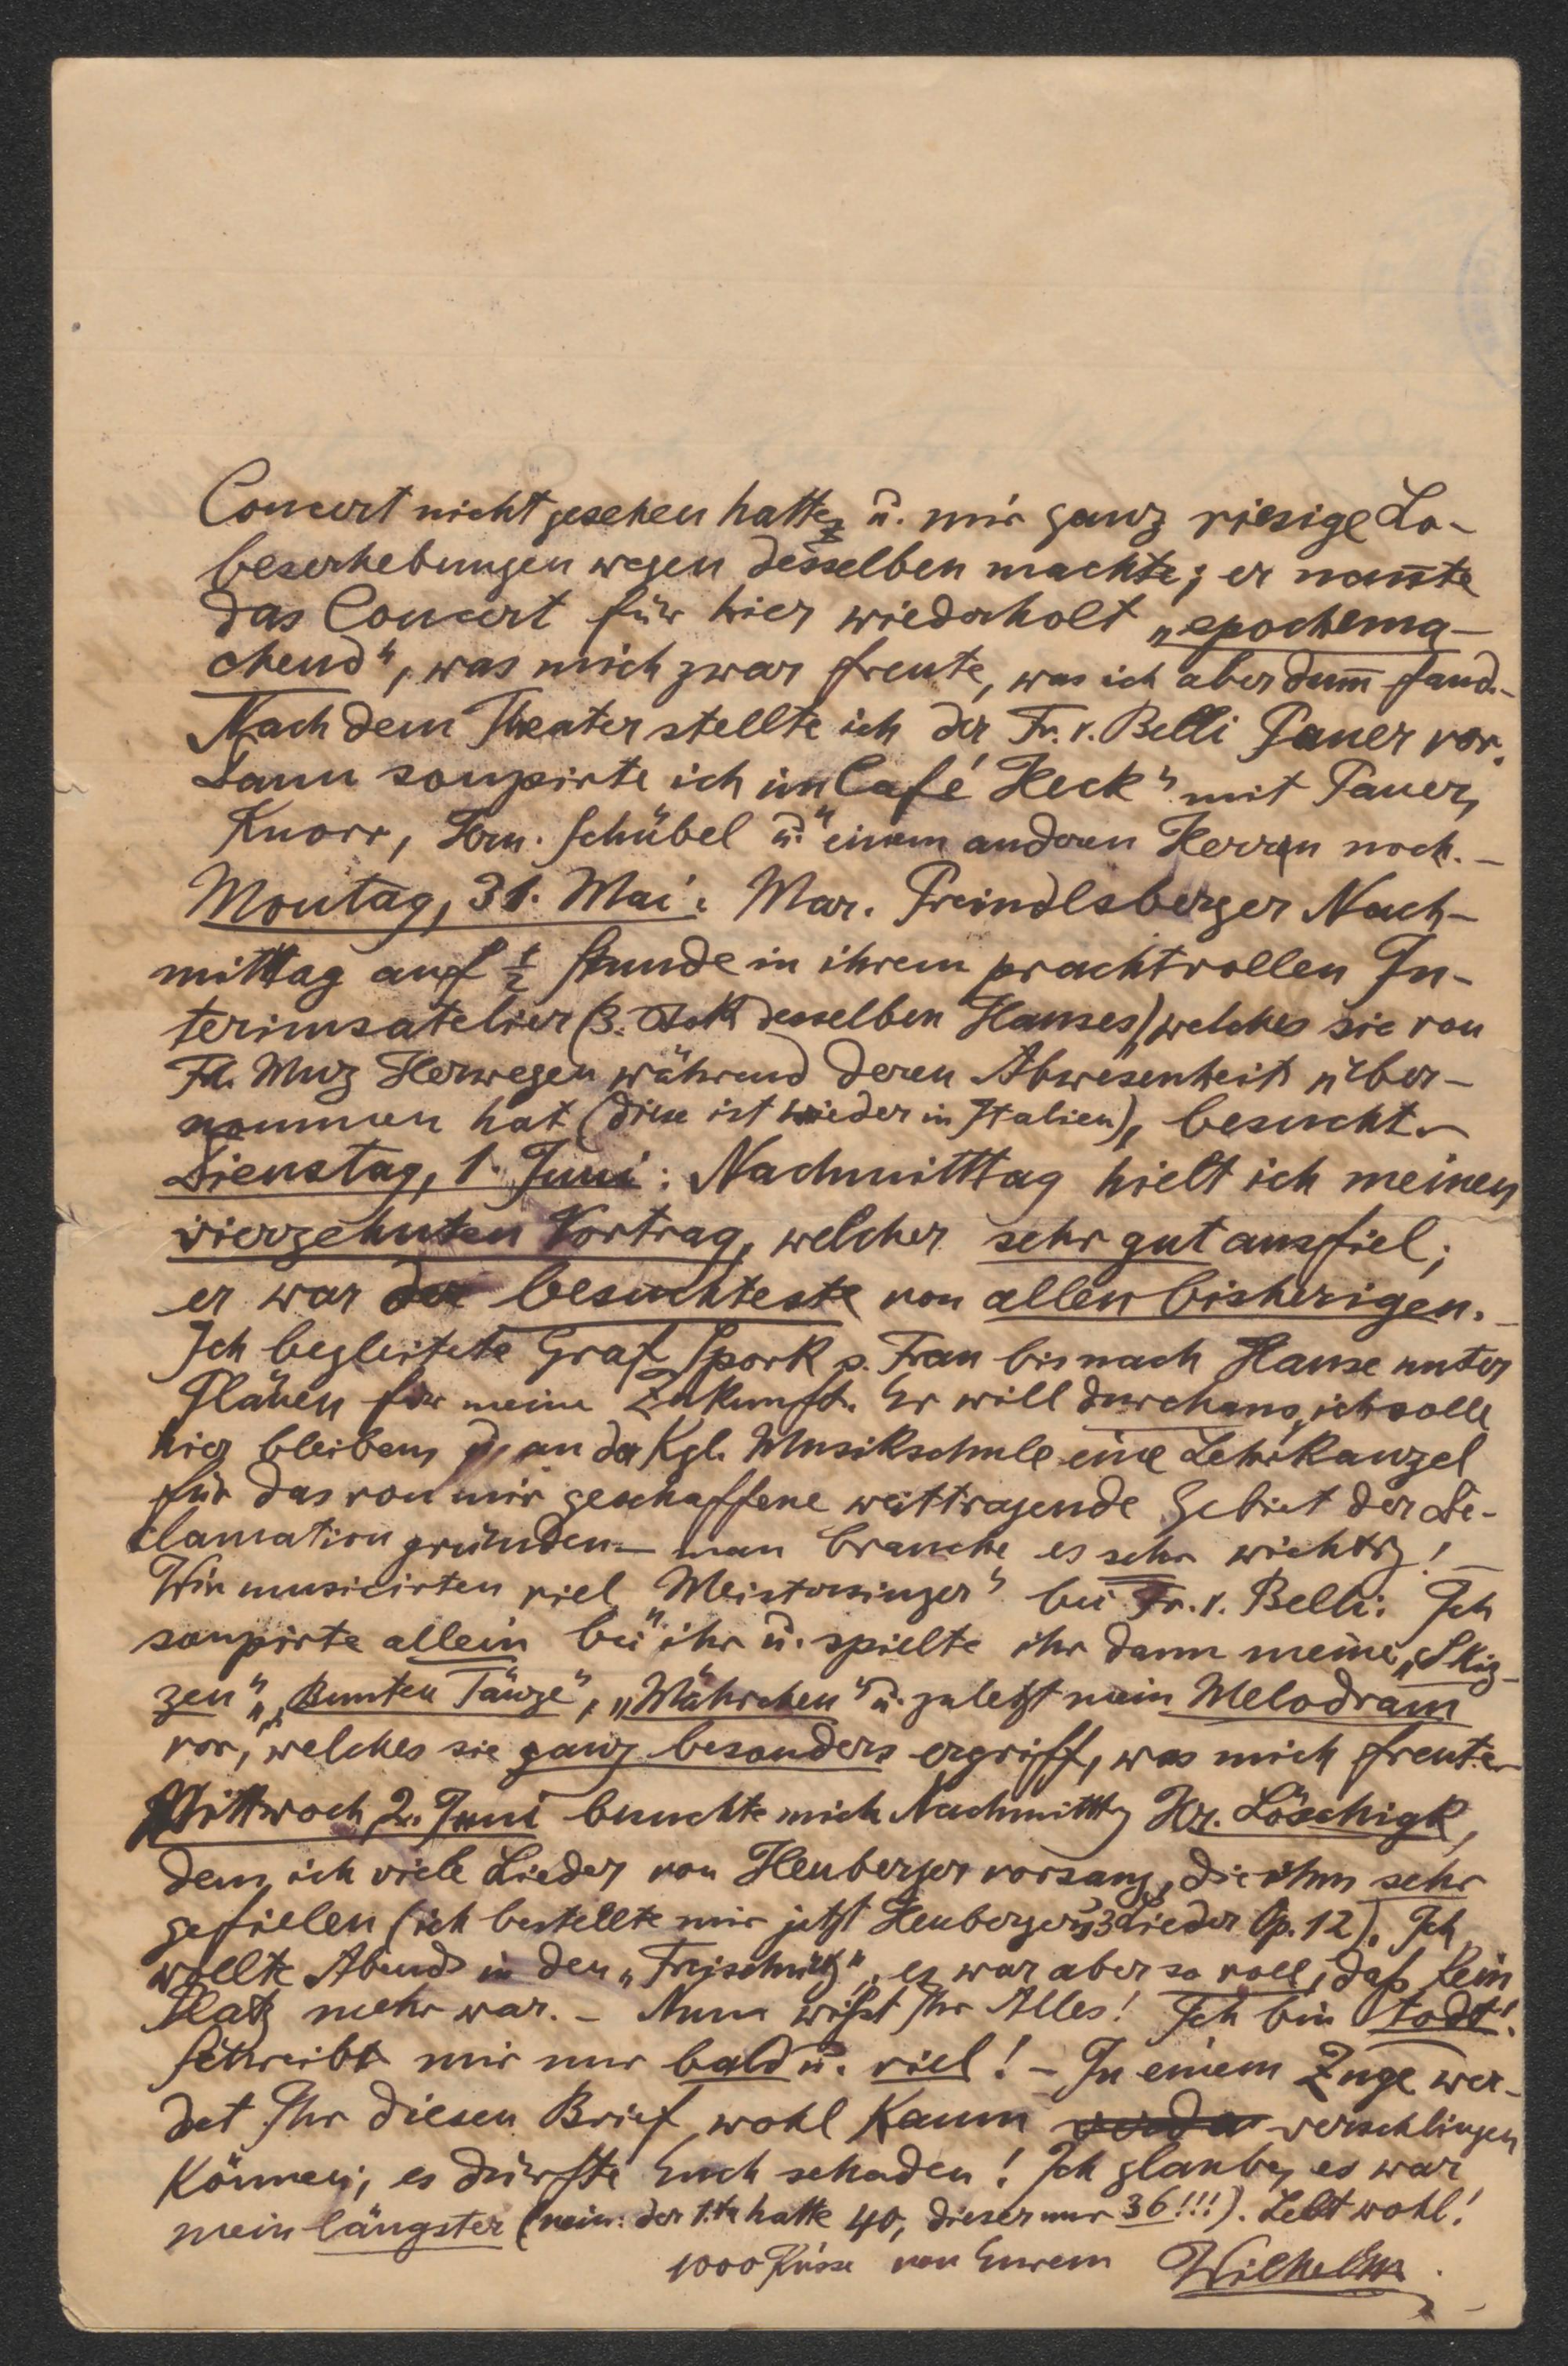 Concert nicht gesehen hatte, u. mir ganz riesige Lo-
beserhebungen wegen desselben machte; er nannte
das Concert für hier wiederholt „epochema-
chend“, was mich zwar freute, was ich aber dum̅ fand.–
Nach dem Theater stellte ich der Fr. v. Belli Pauer vor.
Dann soupirte ich im „Café Heck“ mit Pauer,
Knorr, Schübel u. einem anderen Herren noch. –
Montag, 31. Mai: Mar. Preindlsberger Nach-
mittag auf ½ Stunde in ihrem prachtvollen In-
terimsatelier (3. Stock desselben Hauses) welches sie von
Frl. Herwegen während deren Abwesenheit über-
nommen hat (diese ist wieder in Italien), besucht. –
Dienstag, 1. Juni: Nachmitttag hielt ich meinen
vierzehnten Vortrag, welcher sehr gut ausfiel;
er war der besuchteste von allen bisherigen. –
Ich begleitete Graf Spork s. Frau bis nach Hause unter
Plänen für meine Zukunft. Er will durchaus, ich solle
hier bleiben, u. an der Kgl. Musikschule eine Lehrkanzel
für das von mir geschaffene weittragende Gebiet der De-
clamation gründen – man brauche es sehr wichtig! –
Wir musicirten viel „Meistersinger“ bei Fr. v. Belli. Ich
soupirte allein bei ihr u. spielte ihr dann meine „Skiz-
zen“, „Bunten Tänze“, „Mährchen“ u. zuletzt mein Melodram
vor, welches sie ganz besonders ergriff, was mich freute. –
Mittwoch, 2. Juni besuchte mich Nachmitttg Hr. Löschigk,
dem ich viele Lieder von Heuberger vorsang, die ihm sehr
gefielen (ich bestellte mir jetzt Heuberger's 3 Lieder Op. 12). Ich
wollte Abends in den „Freischütz“, es war aber so voll, daß kein
Platz mehr war. – Nun wißt Ihr Alles! Ich bin todt!
Schreibt mir nur bald u. viel! – In einem Zuge wer-
det Ihr diesen Brief wohl kaum verschlingen
können; es dürfte Euch schaden! Ich glaube, es war
mein längster (nein: der 1.te hatte 40, dieser nur 36!!!). Lebt wohl!
1000 Küsse von Eurem Wilhelm.